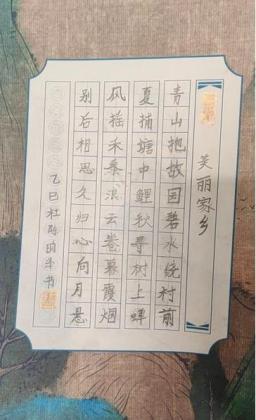 美丽家乡
青山抱故国碧水绕村前
夏捕塘中鲤秋寻树上蝉
风摇禾黍浪云卷暮霞烟
别后相思久归心向月悬
乙巳杜陈田华书